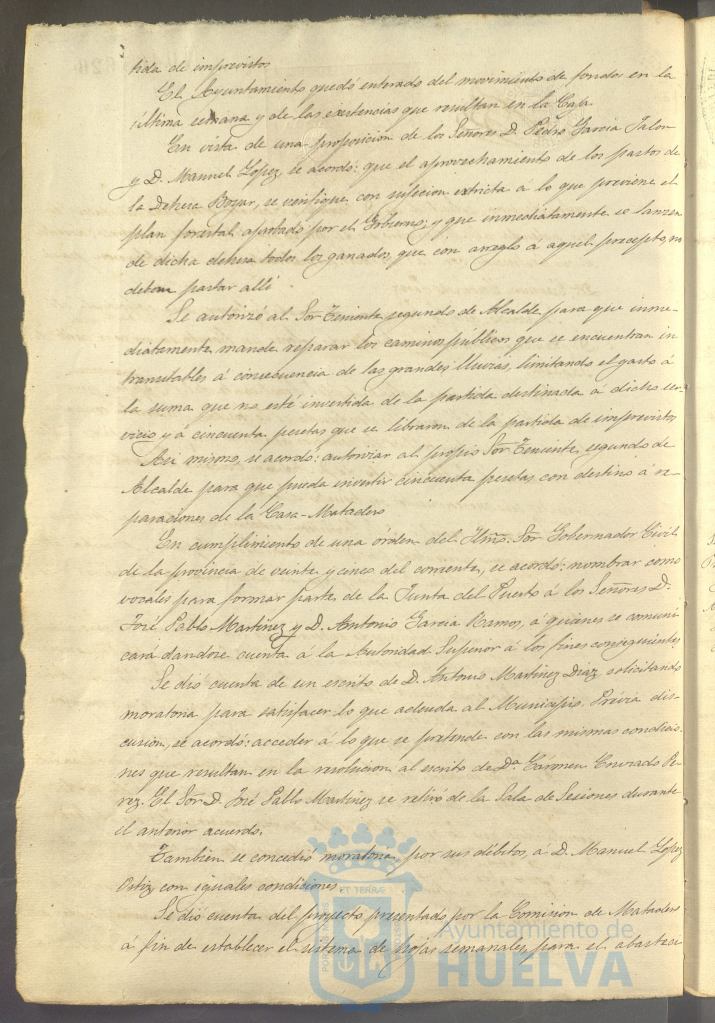 tida de imprevistos
El Ayuntamiento quedó enterado del movimiento de fondos en la
última semana y de las existencias que resultan en la Caja.
En vista de una proposicion de los Señores D. Pedro Garcia Jalon
y D. Manuel Lopez, se acordó: que el aprovechamiento de los pastos de
la Dehesa Boyar, se verifique con sujecion extricta a lo que previene el
plan forestal aprobado por el Gobierno; y que inmediatamente se lanzen
de dicha dehesa todos los ganados, que con arreglo á aquel precepto, no
deban pastar allí.
Se autorizó al Sor Teniente segundo de Alcalde para que inme-
diatamente mande reparar los caminos públicos que se encuentran in
transitables á consecuencia de las grandes lluvias, limitando el gasto á
la suma que no esté invertida de la partida destinada á dicho ser-
vicio y á cincuenta pesetas que se libraran de la partida de imprevistos
Asi mismo, se acordó: autorizar al propio Sor Teniente segundo de
Alcalde para que pueda invertir cincuenta pesetas con destino á re-
paraciones de la Casa-Matadero
En cumplimiento de una órden del Iltmo. Sor Gobernador Civil
de la provincia de veinte y cinco del corriente, se acordó: nombrar como
vocales para formar parte de la Junta del Puerto á los Señores D.
José Pablo Martinez y D. Antonio Garcia Ramos, á quienes se comuni
cará dandose cuenta á la Autoridad Superior á los fines consiguientes
Se dió cuenta de un escrito de D. Antonio Martinez Diaz solicitando
moratoria para satisfacer lo que adeuda al Municipio. Prévia dis-
cusion, se acordó: acceder á lo que se pretende con las mismas condicio-
nes que resultan en la resolucion al escrito de Dª Cármen Conrado Pe-
rez. El Sor D. José Pablo Martinez se retiró de la Sala de Sesiones durante
el anterior acuerdo.
Tambien se concedió moratoria, por sus débitos, á D. Manuel Lopez
Ortiz con iguales condiciones.
Se dió cuenta del proyecto presentado por la Comision de Matadero
á fin de establecer el sistema de hojas semanales para el abasteci
Ayuntamiento de
HUELVA